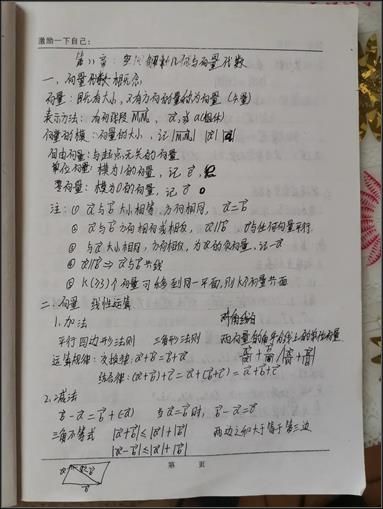 激励一下自己:
第八章:空间解析几何与向量代数
一、向量代数相关概念
向量:既有大小,又有方向的量称为向量(矢量)
表示方法:有向线段 M₁M₂
向量的模:向量的大小,记
自由向量:与起点无关的向量
单位向量:模为1的向量,记 e⃗
零向量:模为0的向量,记 0⃗
注:① a⃗与b⃗大小相等,方向相同,a⃗=b⃗
② a⃗与b⃗方向相同或相反,a⃗∥b⃗ 0⃗与任何向量平行
③ 与a⃗大小相同,方向相反,为a⃗的负向量,记-a⃗
④ a⃗∥b⃗⇒a⃗与b⃗共线
⑤ K(≥3)个向量可移到同一平面,则K个向量共面
二、向量 线性运算
1.加法 对角线
平行四边形法则 三角形法则 两向量的角平分线上的单位向量
运算规律:交换律:a⃗+b⃗=b⃗+a⃗
结合律:(a⃗+b⃗)+c⃗=a⃗+(b⃗+c⃗)=a⃗+b⃗+c⃗
2.减法
b⃗-a⃗=b⃗+(-a⃗) 当a⃗=b⃗时,b⃗-a⃗=0⃗
三角不等式 |a⃗+b⃗|≤|a⃗|+|b⃗| 两边之和大于等于第三边
|a⃗-b⃗|≤|a⃗|+|b⃗|
第 页